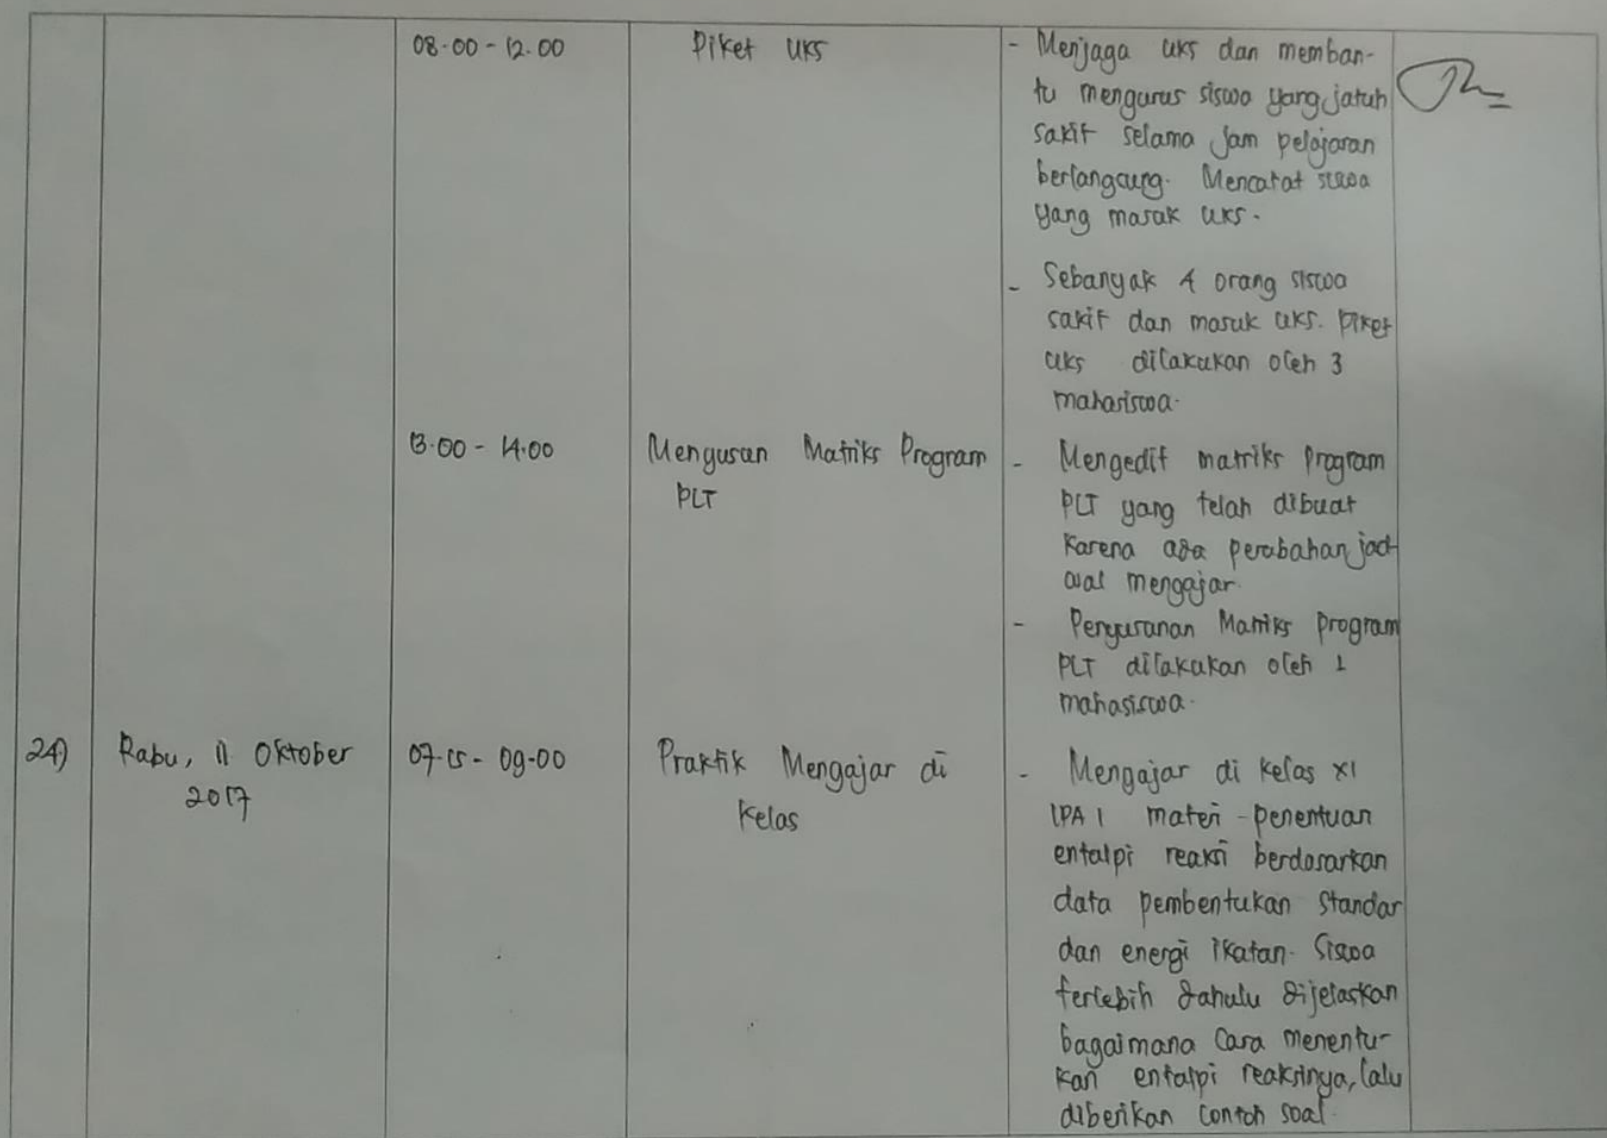 08.00 - 12.00 Piket UKS - Menjaga UKS dan memban-
tu mengurus siswa yang jatuh
sakit selama jam pelajaran
berlangsung. Mencatat siswa
yang masuk UKS.
- Sebanyak 4 orang siswa
sakit dan masuk UKS. Piket
UKS dilakukan oleh 3
mahasiswa.
13.00 - 14.00 Menyusun Matriks Program - Mengedit matriks program
PLT PLT yang telah dibuat
karena ada perubahan jad-
wal mengajar.
- Penyusunan Matriks program
PLT dilakukan oleh 1
mahasiswa.
24) Rabu, 11 Oktober 07.15 - 09.00 Praktik Mengajar di - Mengajar di kelas XI
2017 Kelas IPA 1 materi penentuan
entalpi reaksi berdasarkan
data pembentukan standar
dan energi ikatan. Siswa
terlebih dahulu dijelaskan
bagaimana cara menentu-
kan entalpi reaksinya, lalu
diberikan contoh soal.